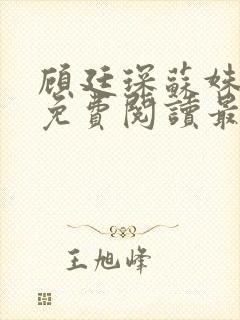 顾廷琛蘇妹
免費閱讀最
王旭峰